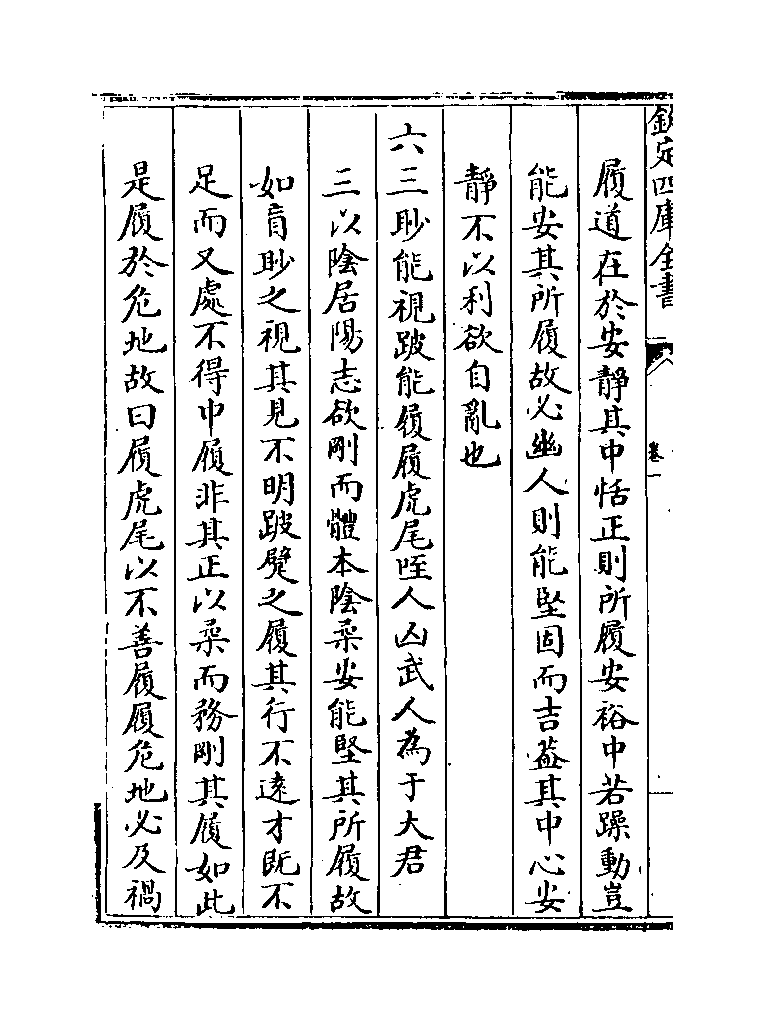 欽定四庫全書
卷一
履道在於安靜其中恬正則所履安裕中若躁動豈
能安其所履故必幽人則能堅固而吉蓋其中心安
靜不以利欲自亂也
六三眇能視跛能履履虎尾咥人凶武人為于大君
三以陰居陽志欲剛而體本陰柔安能堅其所履故
如盲眇之視其見不明跛躄之履其行不遠才既不
足而又處不得中履非其正以柔而務剛其履如此
是履於危地故曰履虎尾以不善履履危地必及禍